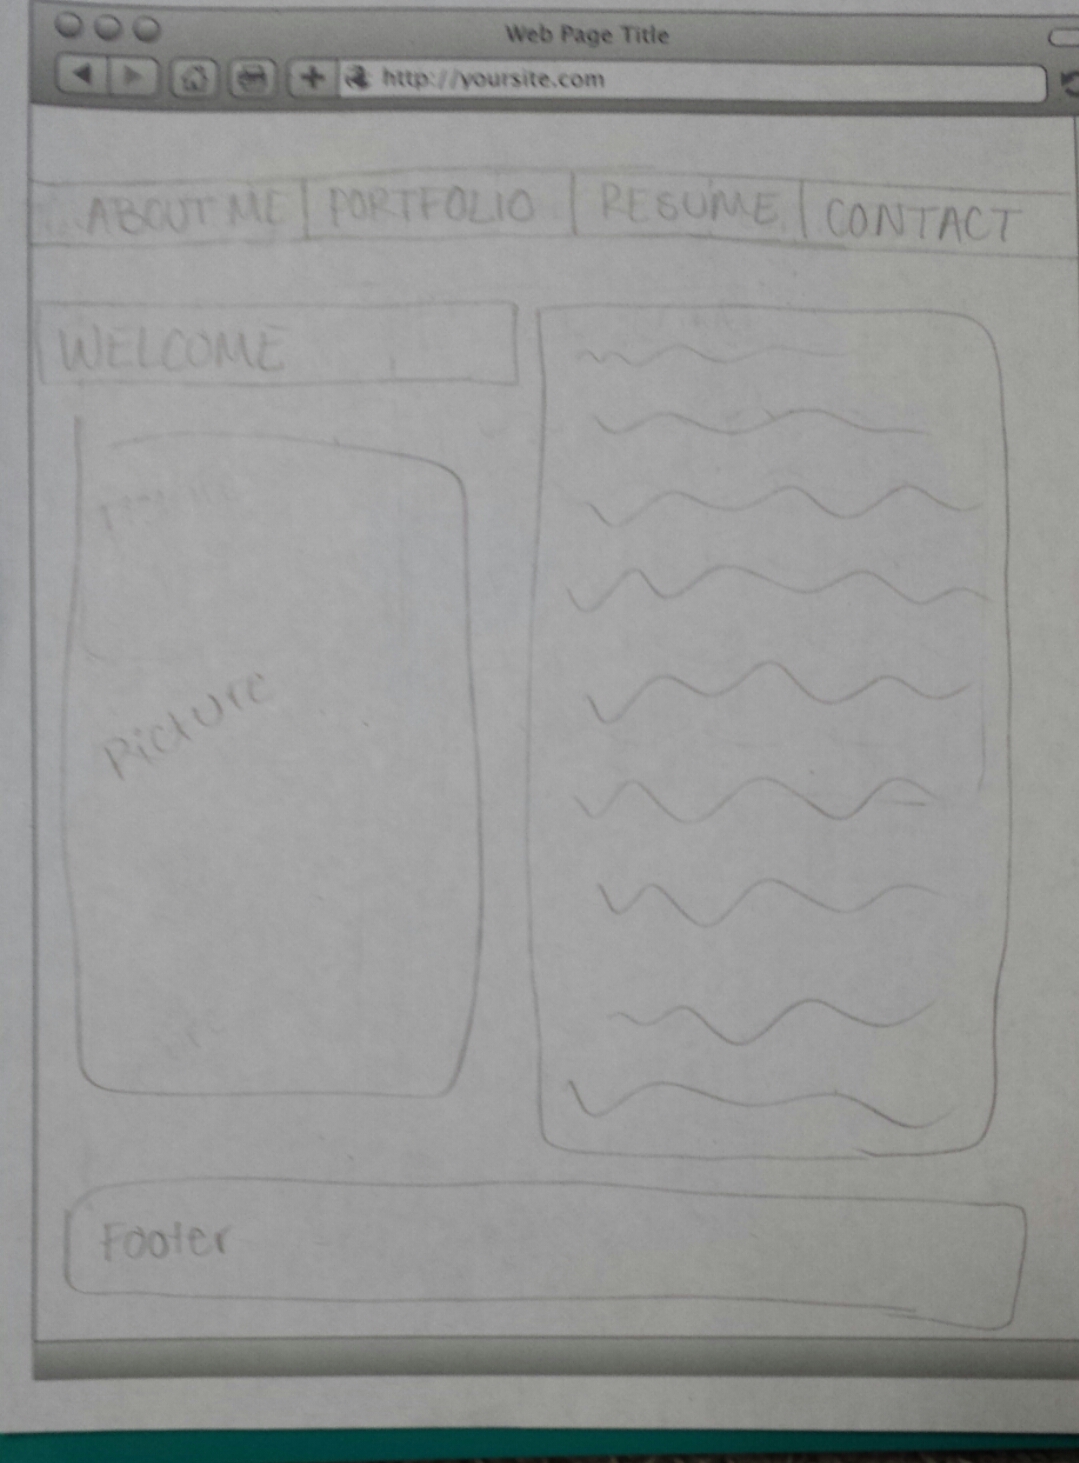 Web Page Title
http://yoursite.com
ABOUT ME | PORTFOLIO | RESUME | CONTACT
WELCOME
Picture
Footer